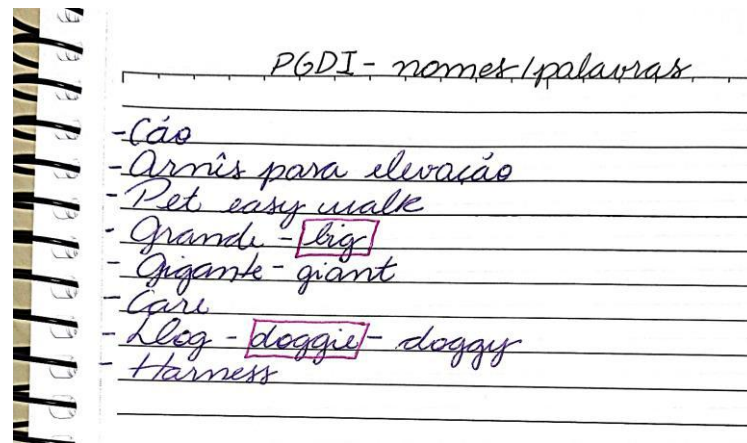 PGDI - nomes/palavras
- Cão
- Arnês para elevação
- Pet easy walk
- Grande - big
- Gigante - giant
- Care
- Dog - doggie - doggy
- Harness